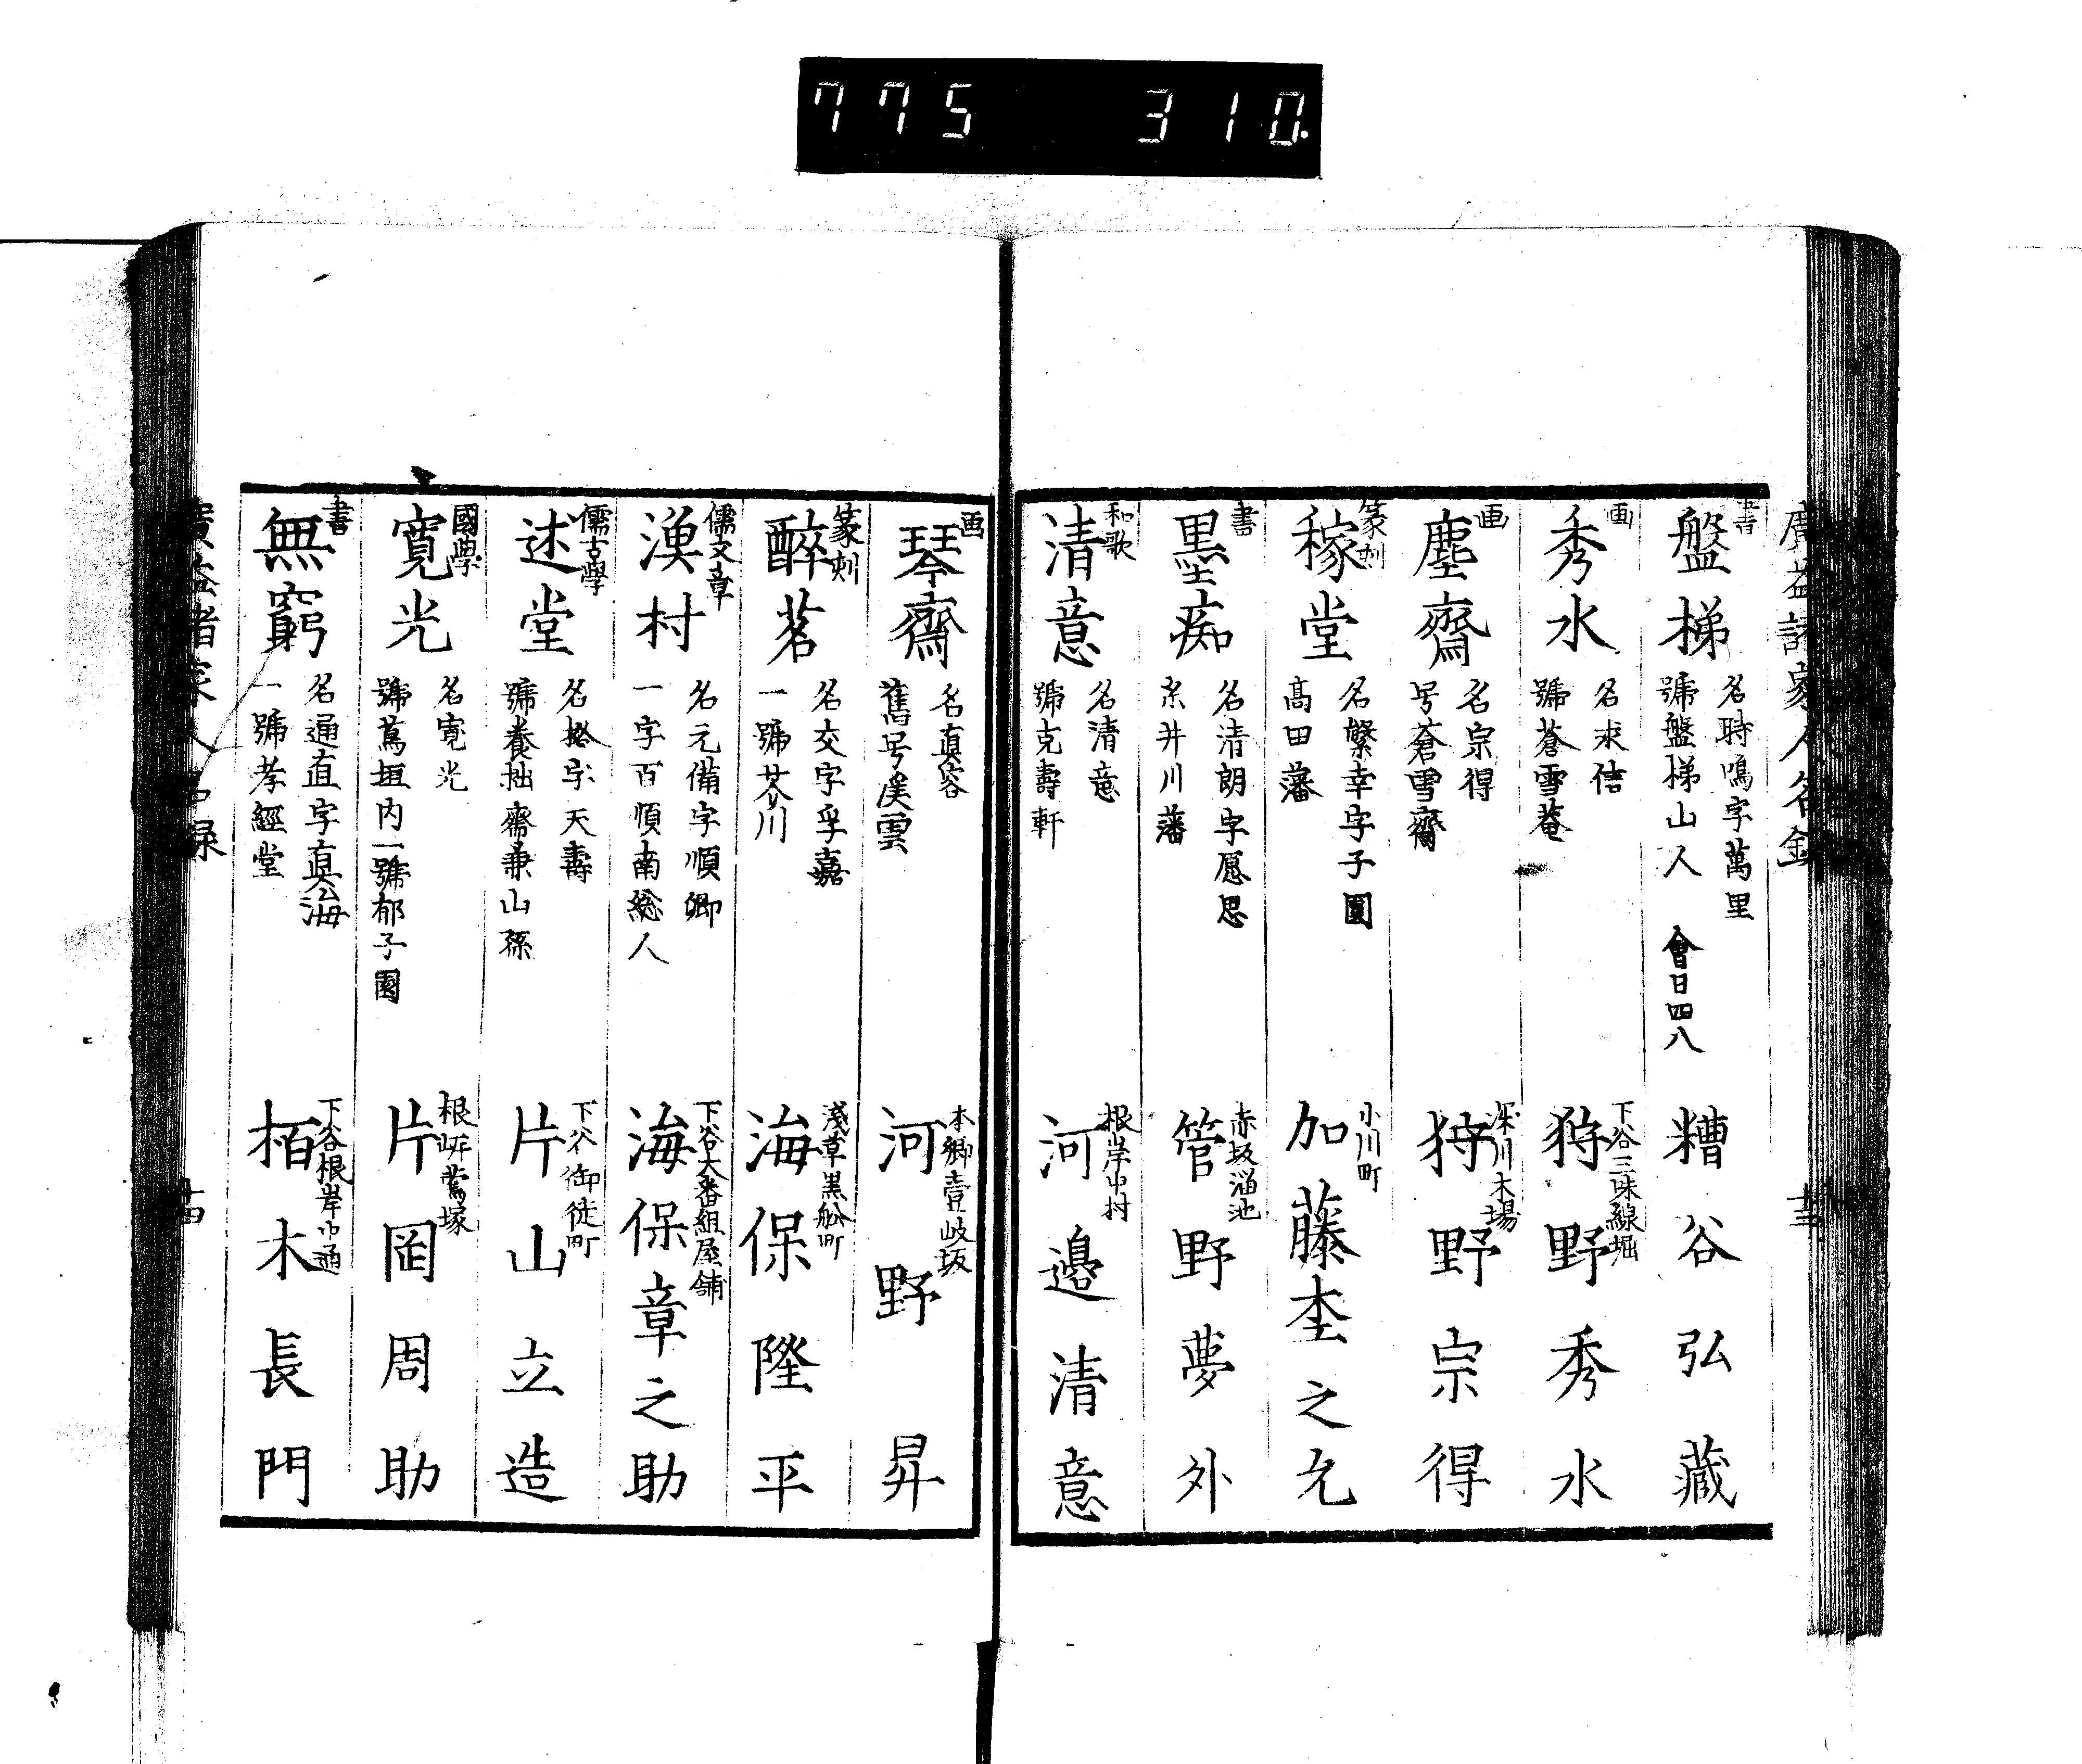 775 310.
廣益諸家人名録
十三
書
盤梯
名時鳴字萬里
號盤梯山人 會日四八
糟谷弘藏
画
秀水
名求信
號蒼雪菴
下谷三味線堀
狩野秀水
画
塵齋
名宗得
号蒼雪齋
深川木場
狩野宗得
篆刻
稼堂
名繁幸字子圓
高田藩
小川町
加藤杢之允
書
墨痴
名清朗字愿思
糸井川藩
赤坂溜池
管野夢外
和歌
清意
名清意
號克壽軒
根岸中村
河邉清意
画
琴齋
名真容
舊号溪雲
本郷壹岐坂
河野昇
篆刻
醉茗
名交字孚嘉
一號芥川
淺草黒舩町
海保隆平
儒文章
漁村
名元備字順卿
一字百順南総人
下谷大番組屋舗
海保章之助
儒古學
述堂
號養拙齋兼山孫
下谷御徒町
片山立造
國學
寛光
名寛光
號蔦垣内一號郁子園
根岸鶯塚
片岡周助
書
無窮
名通直字真海
一號孝經堂
下谷根岸中通
栢木長門
廣益諸家人名録
十四